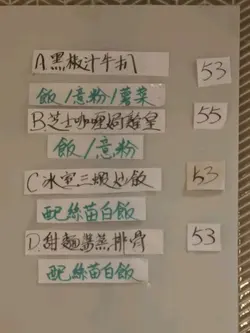 A.黑椒汁牛扒 53
飯/意粉/薯菜
B.芝士咖喱焗雞皇 55
飯/意粉
C.冰室三蝦炒飯 53
配絲苗白飯
D.甜麵醬蒸排骨 53
配絲苗白飯